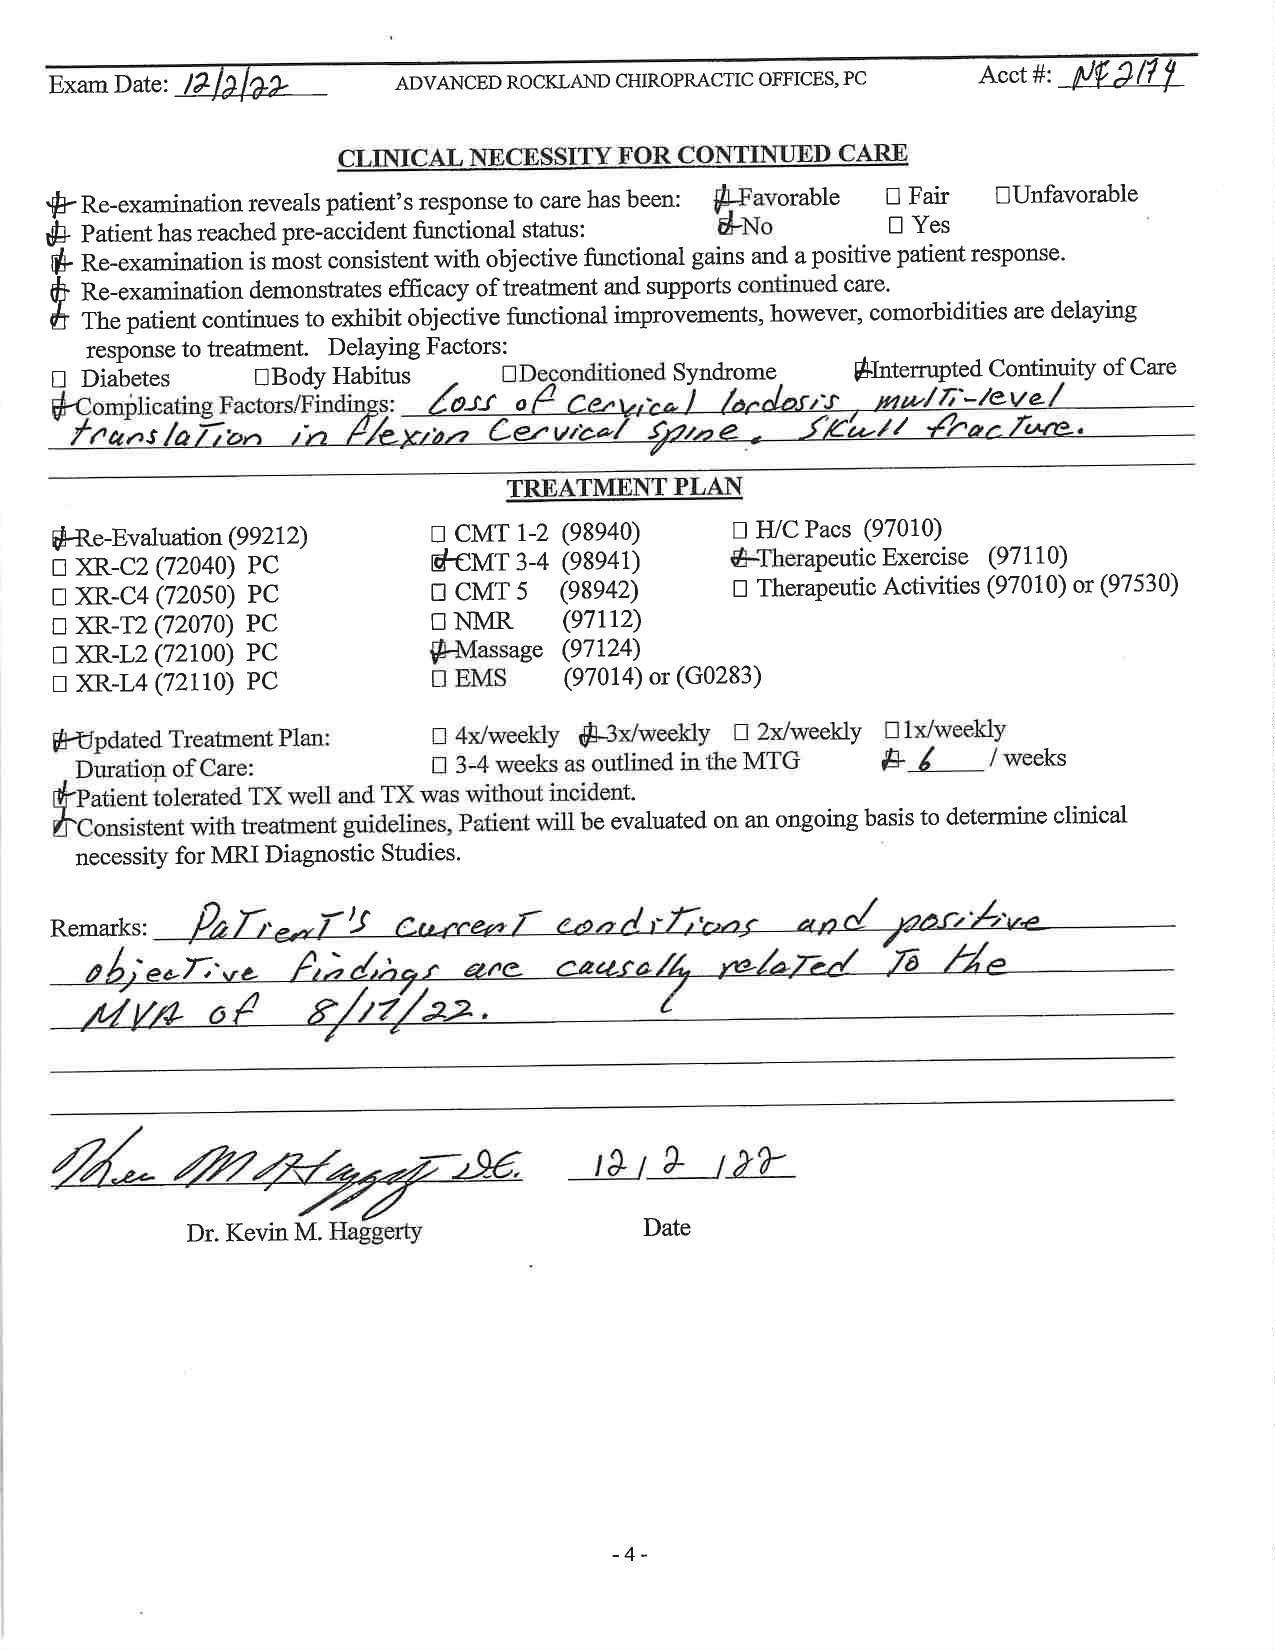 Exam Date: 12/2/22 ADVANCED ROCKLAND CHIROPRACTIC OFFICES, PC Acct #: NF2174
CLINICAL NECESSITY FOR CONTINUED CARE
☑ Re-examination reveals patient's response to care has been: ☑ Favorable ☐ Fair ☐ Unfavorable
☑ Patient has reached pre-accident functional status: ☑ No ☐ Yes
☑ Re-examination is most consistent with objective functional gains and a positive patient response.
☑ Re-examination demonstrates efficacy of treatment and supports continued care.
☑ The patient continues to exhibit objective functional improvements, however, comorbidities are delaying
response to treatment. Delaying Factors:
☐ Diabetes ☐ Body Habitus ☐ Deconditioned Syndrome ☑ Interrupted Continuity of Care
☑ Complicating Factors/Findings: Loss of Cervical lordosis, multi-level
translation in flexion Cervical Spine. Skull fracture.
TREATMENT PLAN
☑ Re-Evaluation (99212) ☐ CMT 1-2 (98940) ☐ H/C Pacs (97010)
☐ XR-C2 (72040) PC ☑ CMT 3-4 (98941) ☑ Therapeutic Exercise (97110)
☐ XR-C4 (72050) PC ☐ CMT 5 (98942) ☐ Therapeutic Activities (97010) or (97530)
☐ XR-T2 (72070) PC ☐ NMR (97112)
☐ XR-L2 (72100) PC ☑ Massage (97124)
☐ XR-L4 (72110) PC ☐ EMS (97014) or (G0283)
☑ Updated Treatment Plan: ☐ 4x/weekly ☑ 3x/weekly ☐ 2x/weekly ☐ 1x/weekly
Duration of Care: ☐ 3-4 weeks as outlined in the MTG ☑ 6 / weeks
☑ Patient tolerated TX well and TX was without incident.
☑ Consistent with treatment guidelines, Patient will be evaluated on an ongoing basis to determine clinical
necessity for MRI Diagnostic Studies.
Remarks: Patient's current conditions and positive
objective findings are causally related to the
MVA of 8/17/22.
Kevin M Haggerty D.C. 12/2/22
Dr. Kevin M. Haggerty Date
- 4 -